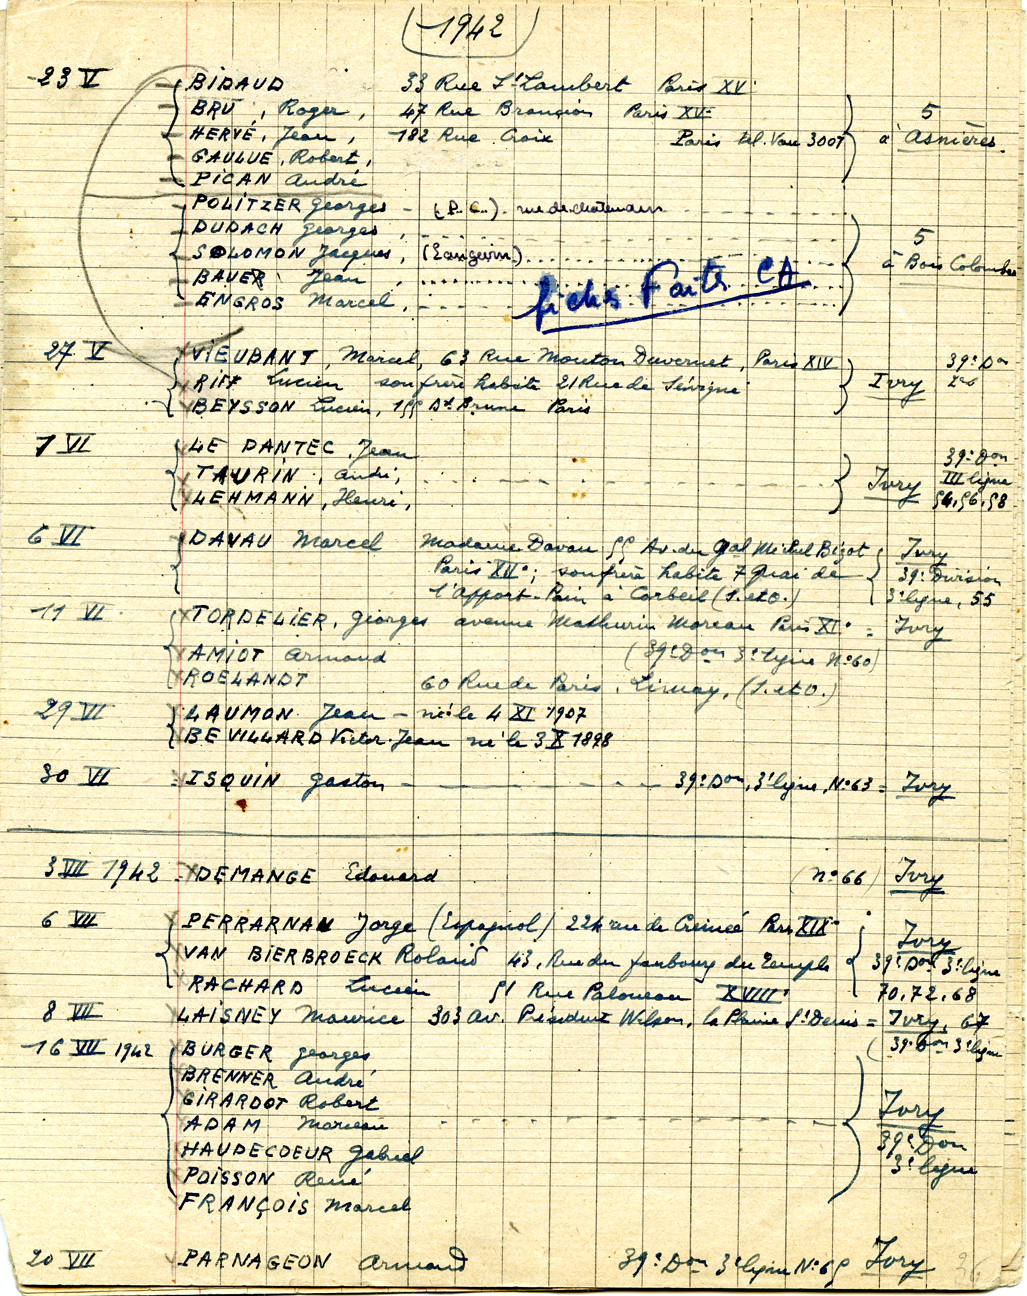 1942
23 V BIDAUD 33 Rue St Lambert Paris XV
BRU, Roger, 47 Rue Brancion Paris XV
HERVÉ, Jean, 182 Rue Croix Paris tel. Vau 3007
5
à Asnières.
GAULUE, Robert,
PICAN André
POLITZER Georges - (P.C.).
DUDACH Georges,
SOLOMON Jacques, (Langevin.)
5
à Bois Colombes
BAUER Jean,
ENGROS Marcel,
fiches Faites CA
27 V VIEUBANT, Marcel, 63 Rue Mouton Duvernet, Paris XIV
RIFF Lucien son frère habite 21 Rue de Sévigné
BEYSSON Lucien, Bd Brune Paris
Ivry 39e Don
7 VI LE DANTEC, Jean
TAURIN, André,
LEHMANN, Henri,
Ivry
39e Don
III ligne
54, 56, 58
6 VI DAVAU Marcel Madame Davau 55 Av. du Gal Michel Bizot
Paris XII; son frère habite 7 Quai de
l'Apport-Paris à Corbeil (S. et O.)
Ivry
39e Division
3e ligne, 55
11 VI TORDELIER, Georges avenue Mathurin Moreau Paris = Ivry
AMIOT Armand (39e Don 3e ligne No 60)
ROELANDT 60 Rue de Paris, Limay, (S. et O.)
29 VI LAUMON Jean - né le 4 XI 1907
BEVILLARD Victor-Jean né le 3 X 1898
30 VI = ISQUIN Gaston - 39e Don, 3e ligne, No 63 = Ivry
3 VII 1942 DEMANGE Edouard (no 66) Ivry
6 VII PERRARNAU Jorge (Espagnol) rue de Crimée Paris XIXe
VAN BIERBROECK Roland 43, Rue du faubourg du Temple
RACHARD Lucien 51 Rue XVIIIe
Ivry
39e Don 3e ligne
70, 72, 68
8 VII LAISNEY Maurice 303 av. Président Wilson, la Plaine St Denis = Ivry, 67
(39e Don 3e ligne
16 VII 1942 BURGER Georges
BRENNER André
GIRARDOT Robert
ADAM Marceau
HAUDECOEUR Gabriel
POISSON René
FRANÇOIS Marcel
Ivry
39e Don
3e ligne
20 VII PARNAGEON Armand 39e Don 3e ligne No 65 Ivry
36